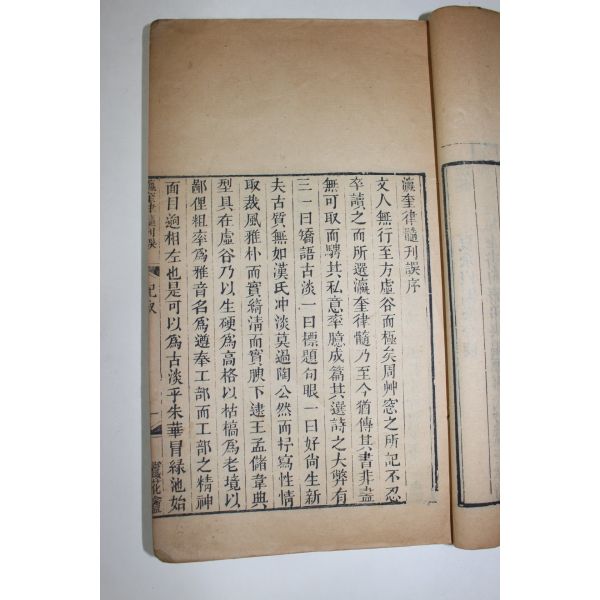 瀛奎律髓刊誤序
文人無行至方虛谷而極矣周艸窓之所記不忍
卒讀之而所選瀛奎律髓乃至今猶傳其書非盡
無可取而騁其私意率臆成篇其選詩之大弊有
三一曰矯語古淡一曰標題句眼一曰好尚生新
夫古質無如漢氏冲淡莫過陶公然而抒寫性情
取裁風雅朴而實綺淸而實腴下逮王孟儲韋典
型具在虛谷乃以生硬爲高格以枯槁爲老境以
鄙俚粗率爲雅音名爲遵奉工部而工部之精神
面目逈相左也是可以爲古淡乎朱華冒緑池始
瀛奎律髓刊誤
紀叙